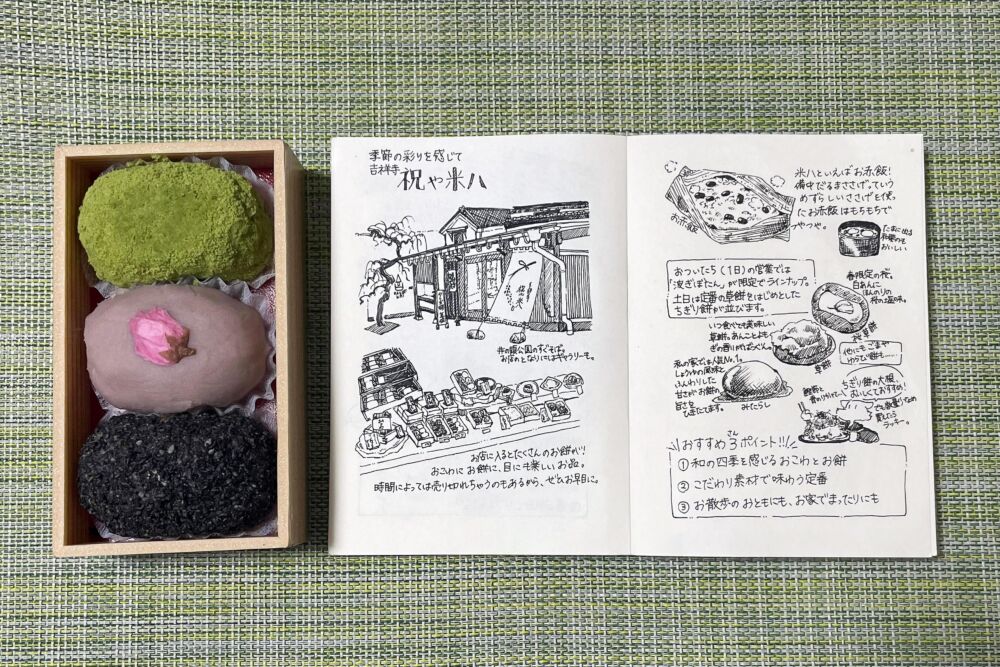 季節の彩りを感じて
吉祥寺
祝や米八
井の頭公園のすぐそば。
お店のとなりにはギャラリーも。
お店に入るとたくさんのお餅が!!
おこわにお餅に、目にも楽しいお品。
時間によっては売り切れちゃうのもあるから、ぜひお早目に。
米八といえばお赤飯!
備中だるまささげっていう
めずらしいささげを使っ
たお赤飯はもちもちで
つやつや。
お赤飯
たまに出る
おいしい
おついたち(1日)の営業では
「波ぎぼたん」が限定でラインナップ。
土日は定番の草餅をはじめとした
ちぎり餅が並びます。
春限定の桜。
白あんに
ほんのりの
桜の塩味。
桜草餅
いつ食べても美味しい
草餅。あんことよも
ぎの香りがたまらん。
草餅
他にもごまや
ゆうてい餅も……
私の家では人気No.1。
しょうゆの風味と
ふんわりした
甘さがお餅の
旨さを
ひきたてます。
みたらし
ちぎり餅の大根
おいしくておすすめ!
でも数量少なめ
買えたら
ラッキー。
おすすめ3ポイント!!
さん
① 和の四季を感じるおこわとお餅
② こだわり素材で味わう定番
③ お散歩のおともにも、お家でまったりにも